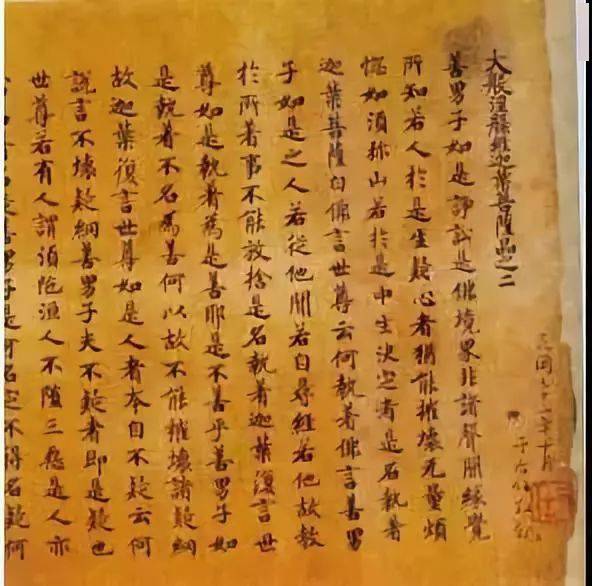 年十月
于右任敬題
大般涅槃經迦葉菩薩品之二
善男子如是諍訟是佛境界非諸聲聞緣覺
所知若人於是生疑心者猶能摧壞无量煩
惱如須弥山若於是中生決定者是名執著
迦葉菩薩白佛言世尊云何執著佛言善男
子如是之人若從他聞若自尋經若他故教
於所著事不能放捨是名執著迦葉復言世
尊如是執著為是善耶是不善乎善男子如
是執著不名為善何以故不能摧壞諸疑網
故迦葉復言世尊如是人者本自不疑云何
說言不壞疑網善男子夫不疑者即是疑也
世尊若有人謂須陀洹人不墮三惡是人亦
疑善男子是可名定不得名疑何